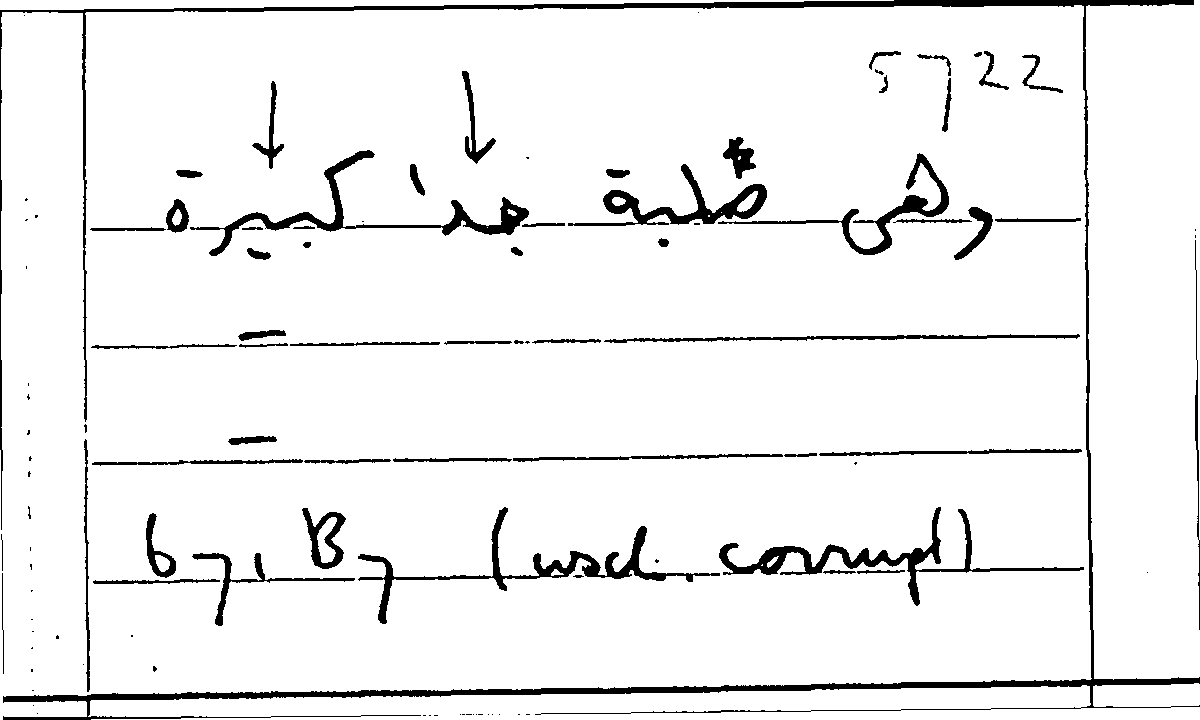 5722
وهى صلبة* جدا كبيرة
–
–
b7, B7 (wsch. corrupt)